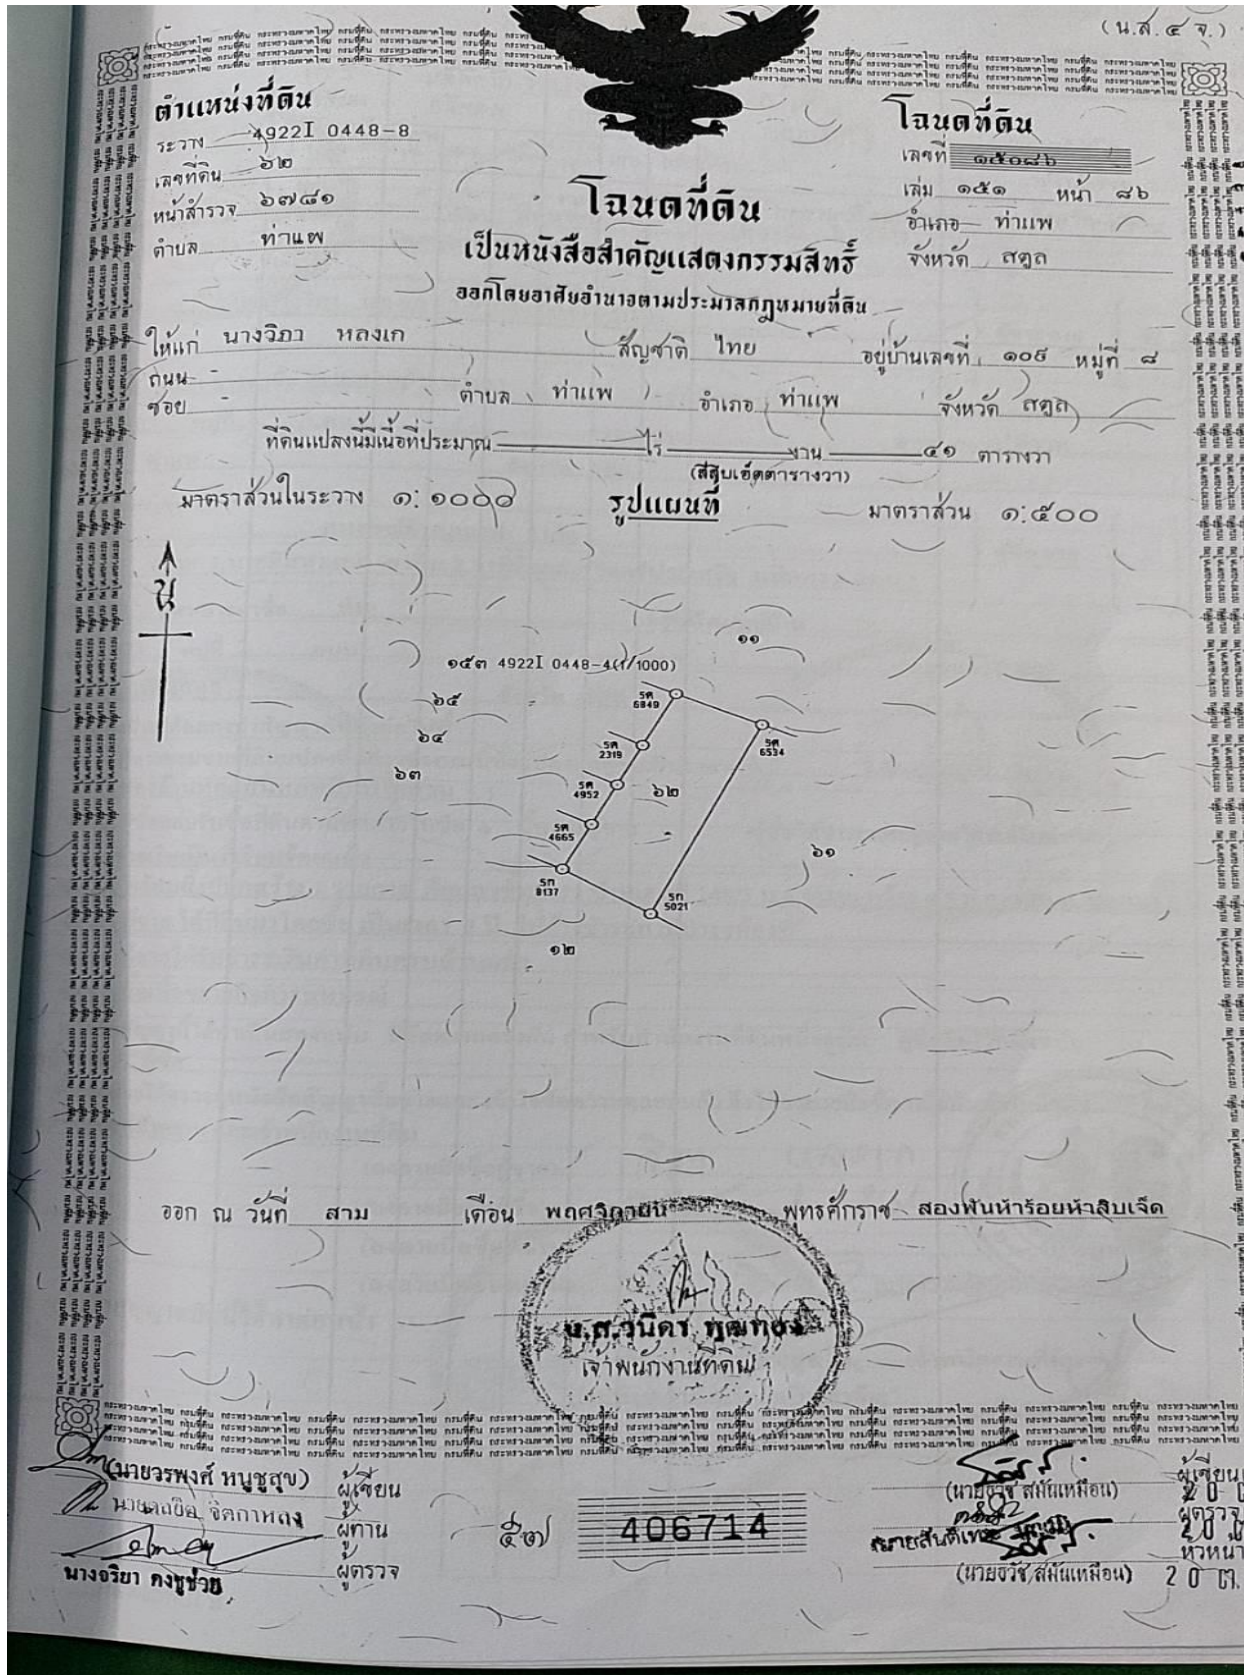 (น.ส. ๔ จ.)
ตำแหน่งที่ดิน
ระวาง 4922I 0448-8
เลขที่ดิน ๖๒
หน้าสำรวจ ๖๗๘๑
ตำบล ท่าแพ
โฉนดที่ดิน
เลขที่ ๑๕๐๘๖
เล่ม ๑๕๑ หน้า ๘๖
อำเภอ ท่าแพ
จังหวัด สตูล
โฉนดที่ดิน
เป็นหนังสือสำคัญแสดงกรรมสิทธิ์
ออกโดยอาศัยอำนาจตามประมวลกฎหมายที่ดิน
ให้แก่ นางวิภา หลงเก สัญชาติ ไทย อยู่บ้านเลขที่ ๑๐๙ หมู่ที่ ๘
ถนน -
ซอย - ตำบล ท่าแพ อำเภอ ท่าแพ จังหวัด สตูล
ที่ดินแปลงนี้มีเนื้อที่ประมาณ ไร่ งาน ๔๑ ตารางวา
(สี่สิบเอ็ดตารางวา)
มาตราส่วนในระวาง ๑:๑๐๐๐ รูปแผนที่ มาตราส่วน ๑:๕๐๐
น
๑๑
๑๕๓ 4922I 0448-4(1/1000)
๖๕
รศ
6849
๖๔
รศ
6534
รศ
2319
๖๓
รศ
4952
๖๒
รศ
4665
๖๑
รก
8137
รก
5021
๑๒
ออก ณ วันที่ สาม เดือน พฤศจิกายน พุทธศักราช สองพันห้าร้อยห้าสิบเจ็ด
เจ้าพนักงานที่ดิน
(นายวรพงศ์ หนูชูสุข) ผู้เขียน
จิตกาหลง ผู้ทาน
นางอริยา คงชูช่วย ผู้ตรวจ
๕๗
406714
(นายธวัช สมันเหมือน) ผู้เขียน
ผู้ตรวจ
หัวหน้า
(นายธวัช สมันเหมือน) 20 ต.